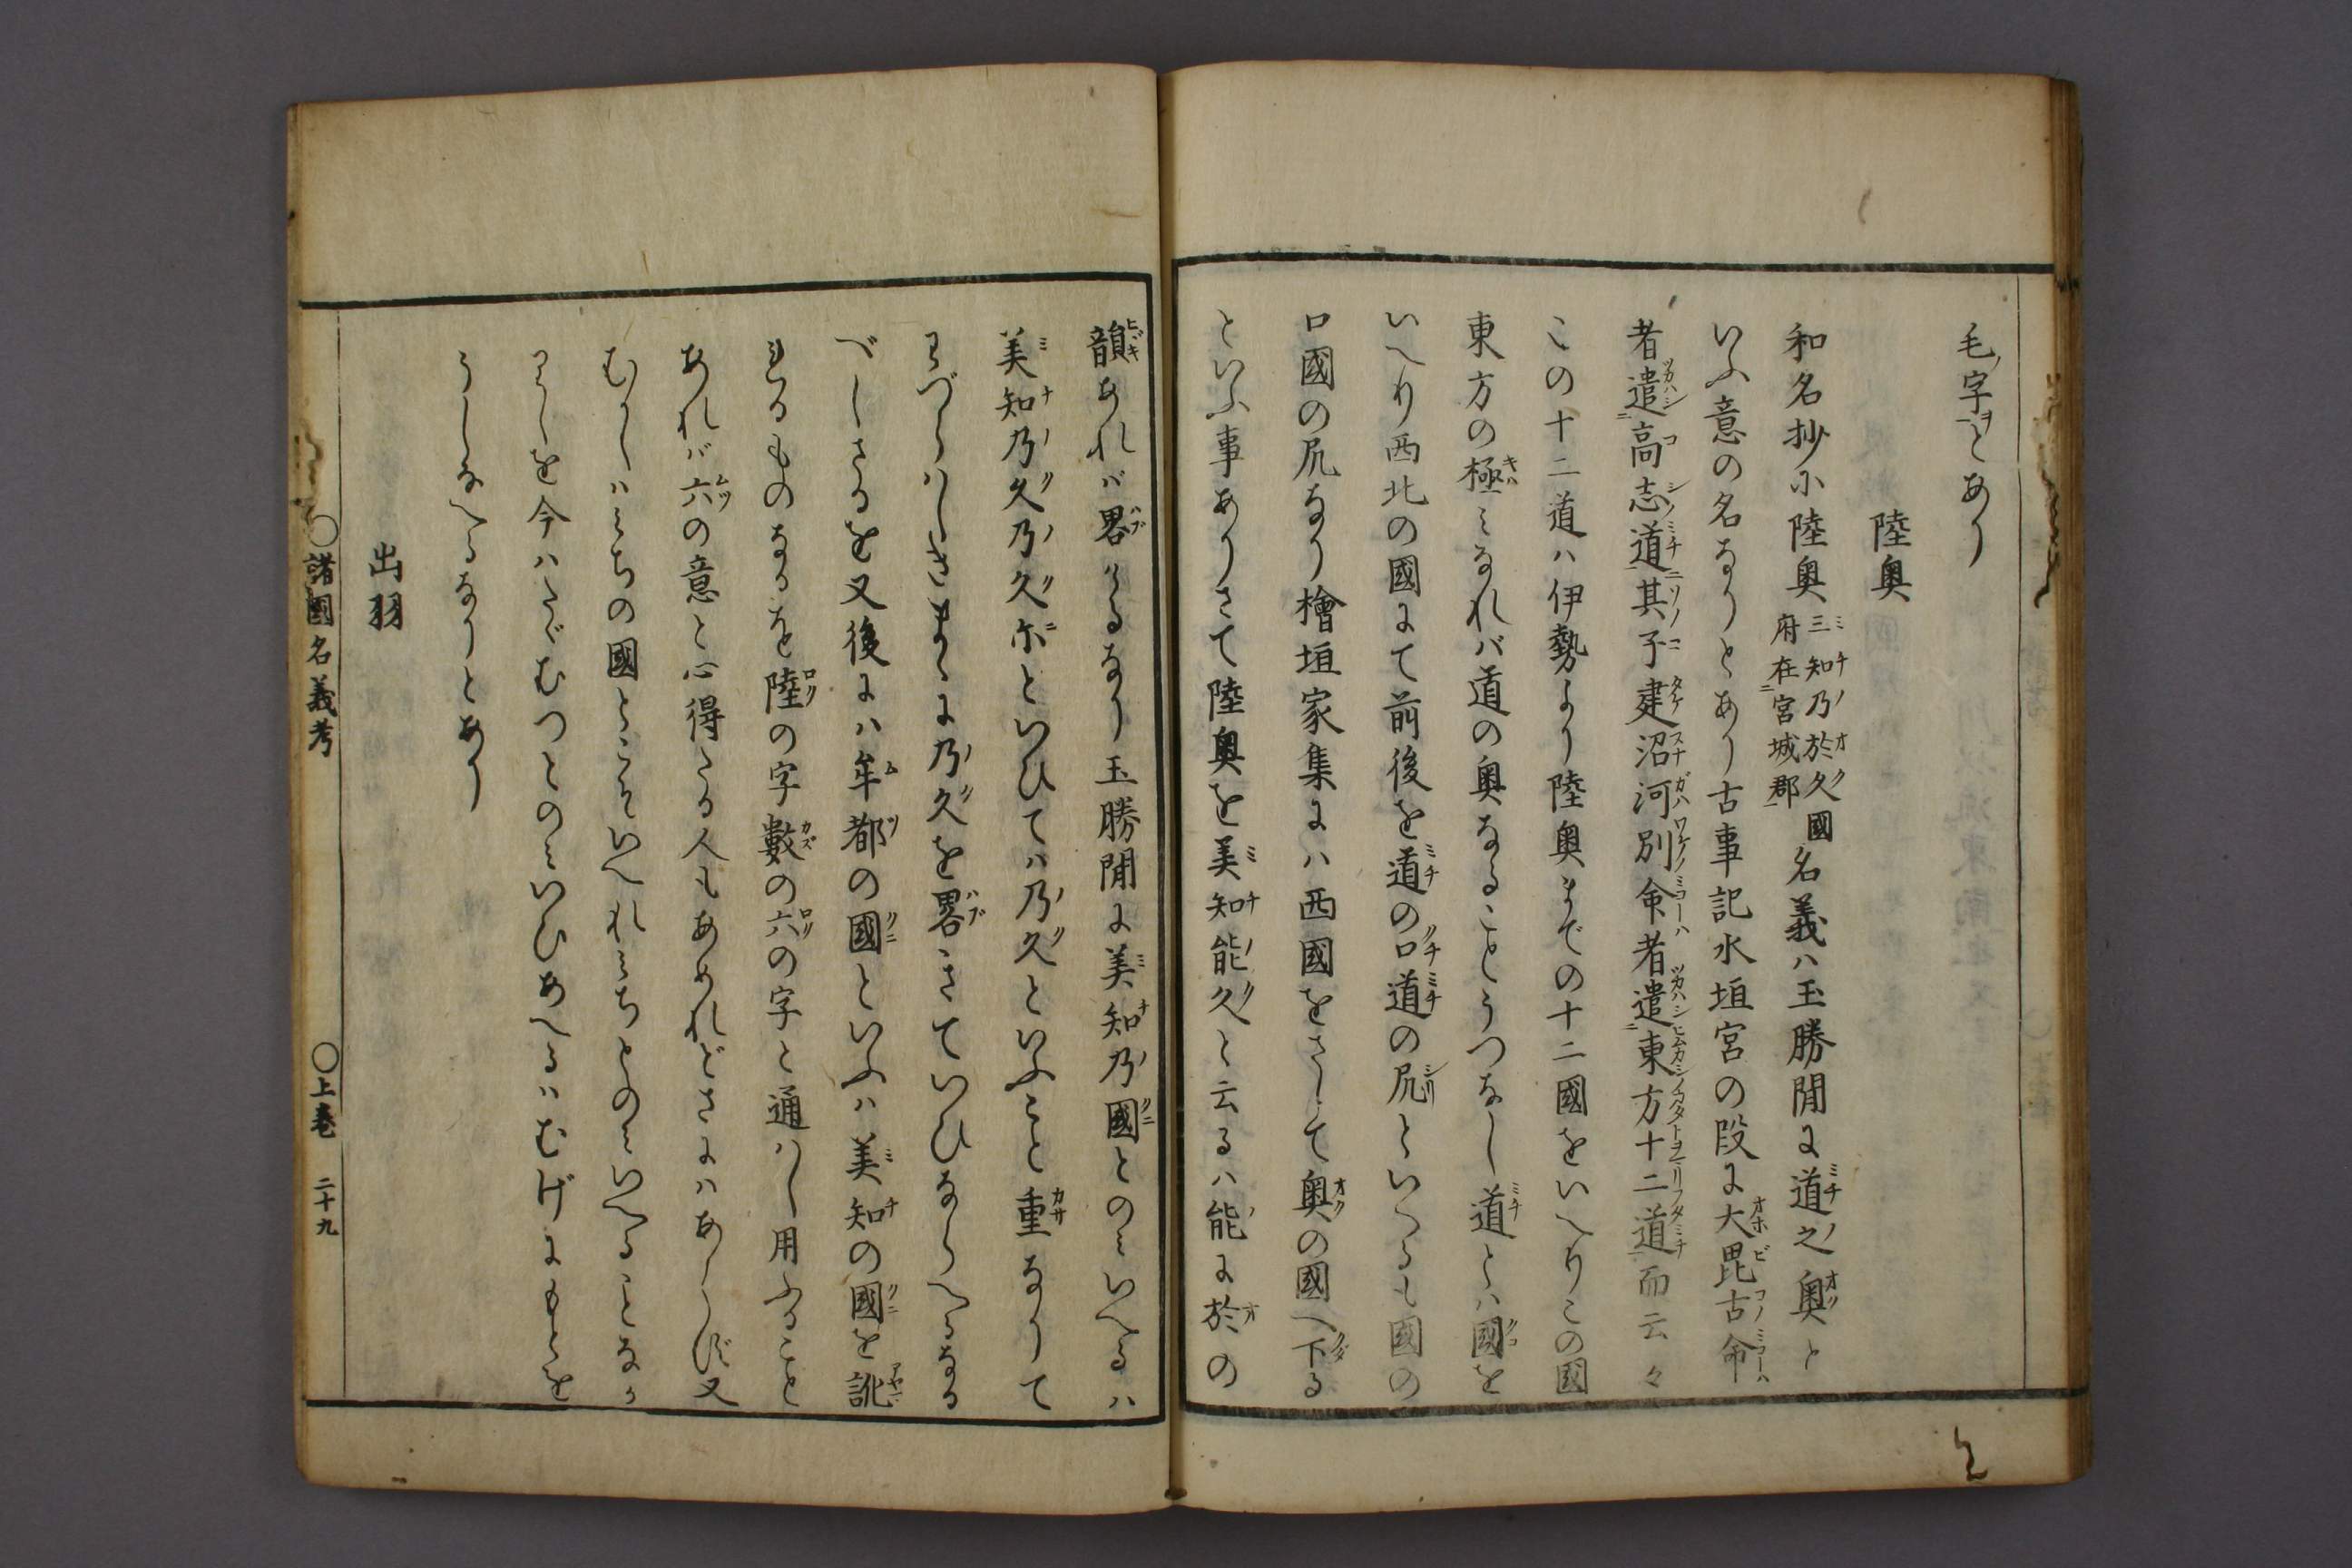 毛ノ字ヲとあり
陸奥
和名抄小陸奥三知乃於久國府在宮城郡名義ハ玉勝間に道之奥と
いふ意の名なりとあり古事記水垣宮の段に大毘古命
者遣高志道其子建沼河別命者遣東方十二道而云々
この十二道ハ伊勢より陸奥までの十二國をいへりこの國
東方の極ミなれバ道の奥なることうつなし道とハ國を
いへり西北の國にて前後を道の口道の尻といへるも國の
口國の尻なり檜垣家集にハ西國をさして奥の國へ下る
といふ事ありさて陸奥を美知能久と云るハ能に於の
韻あれバ畧ける なり玉勝間に美知乃國とのミいへるハ
美知乃久乃久尓といひてハ乃久といふこと重なりて
わづらハしきまゝに乃久を畧きていひならへるなる
べしさるを又後にハ牟都の國といふハ美知の國を訛
れるものなるを陸の字數の六の字と通ハし用ふること
あれバ六の意と心得たる人もあめれどさにハあらず又
むかしハミちの國とこそいへれミちとのミいへることなか
りしを今ハたゞむつとのミいひあへるハむげにもとを
うしなへるなりとあり
出羽
〇諸國名義考 〇上巻 二十九